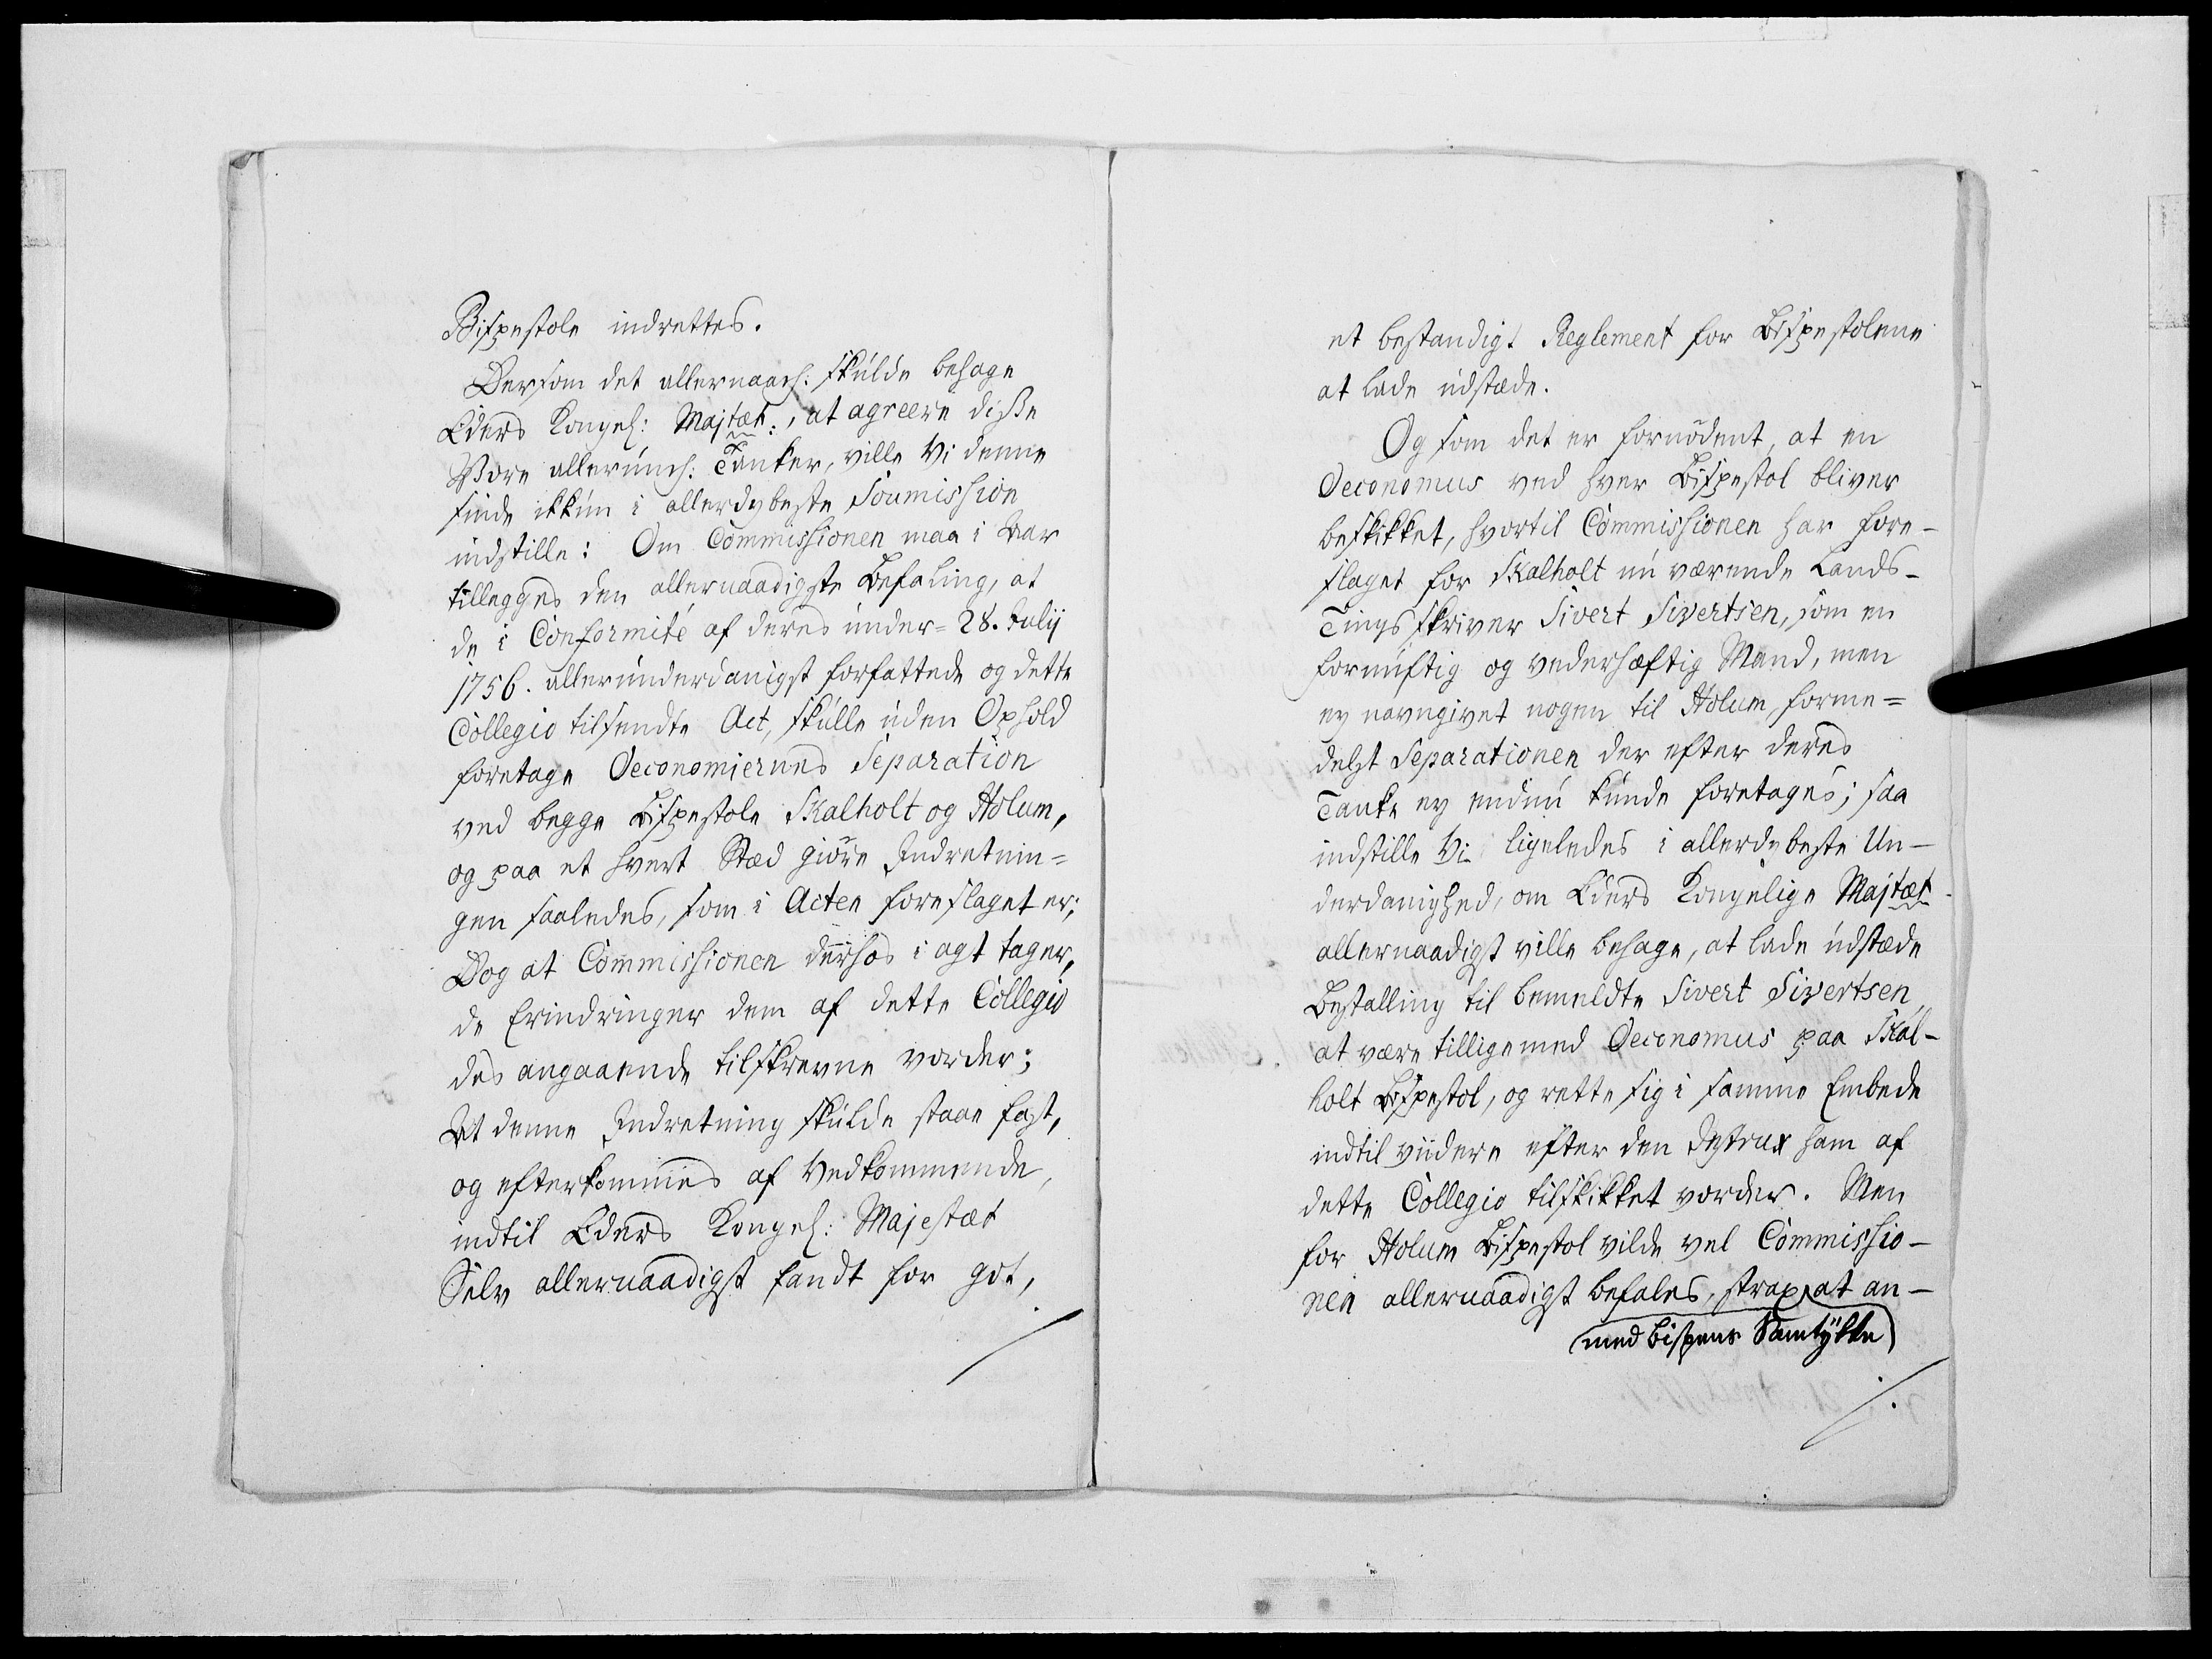 Bispestole indrettes.
Dersom det allernaad: skulde behage
Eders Kongel: Majtæt:, at agreere disse
Vore allerund: Tanker, ville Vi denne
sinde ikkun i allerdybeste Soumission
indstille: Om Commissionen maa i Aar
tillegges den allernaadigste Befaling, at
de i Conformité af deres under= 28. Julij
1756. allerunderdanigst forfattede og dette
Collegio tilsendte Act, skulle uden Ophold
foretage Oeconomiernes Separation
ved begge Bispestole Skalholt og Holum,
og paa et hvert Stæd giöre Indretnin=
gen saaledes, som i Acten foreslaget er;
Dog at Commissionen derhos i agt tager,
de Erindringer dem af dette Collegio
des angaaende tilskrevne vorder;
At denne Indretning skulde staae fast,
og efterkommes af Vedkommende,
indtil Eders Kongel: Majestæt
Selv allernaadigst fandt for got,
et bestandigt Reglement for Bispestolene
at lade udstæde.
Og som det er fornödent, at en
Oeconomus ved hver Bispestol bliver
beskikket, hvortil Commissionen har fore-
slaget for Skalholt nu værende Lands-
Tings skriver Sivert Sivertsen, som en
fornuftig og vederhæftig Mand, men
ey navngivet nogen til Holum, forme=
delst Separationen der efter deres
Tanke ey endnu kunde foretages; saa
indstille Vi ligeledes i allerdybeste Un-
derdanighed, om Eders Kongelige Majtæt
allernaadigst ville behage, at lade udstæde
Bestalling til bemeldte Sivert Sivertsen,
at være tilligemed Oeconomus paa Skal-
holt Bispestol, og rette sig i samme Embede
indtil viidere efter den Instrux ham af
dette Collegio tilskikket vorder. Men
for Holum Bispestol vilde vel Commissio-
nen allernaadigst befales, strax at an-
med Bispens Samtykke